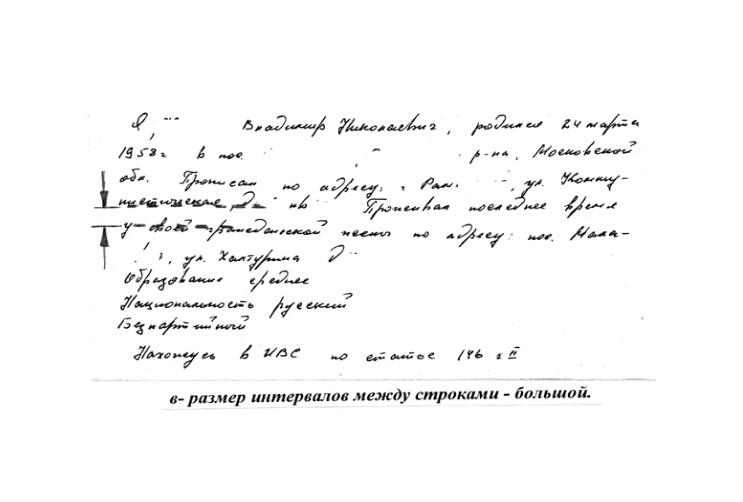 Я, ... Владимир Николаевич, родился 24 марта
1958 г в пос. р-на, Московской
обл. Прописан по адресу: г Рам. , ул. Коммуни-
стическая, д. кв Проживал последнее время
у своей гражданской жены по адресу: пос. Мала-
, ул. Халтурина д
Образование среднее
Национальность русский
Безпартийный
Нахожусь в ИВС по статье 146 ч II
в- размер интервалов между строками - большой.